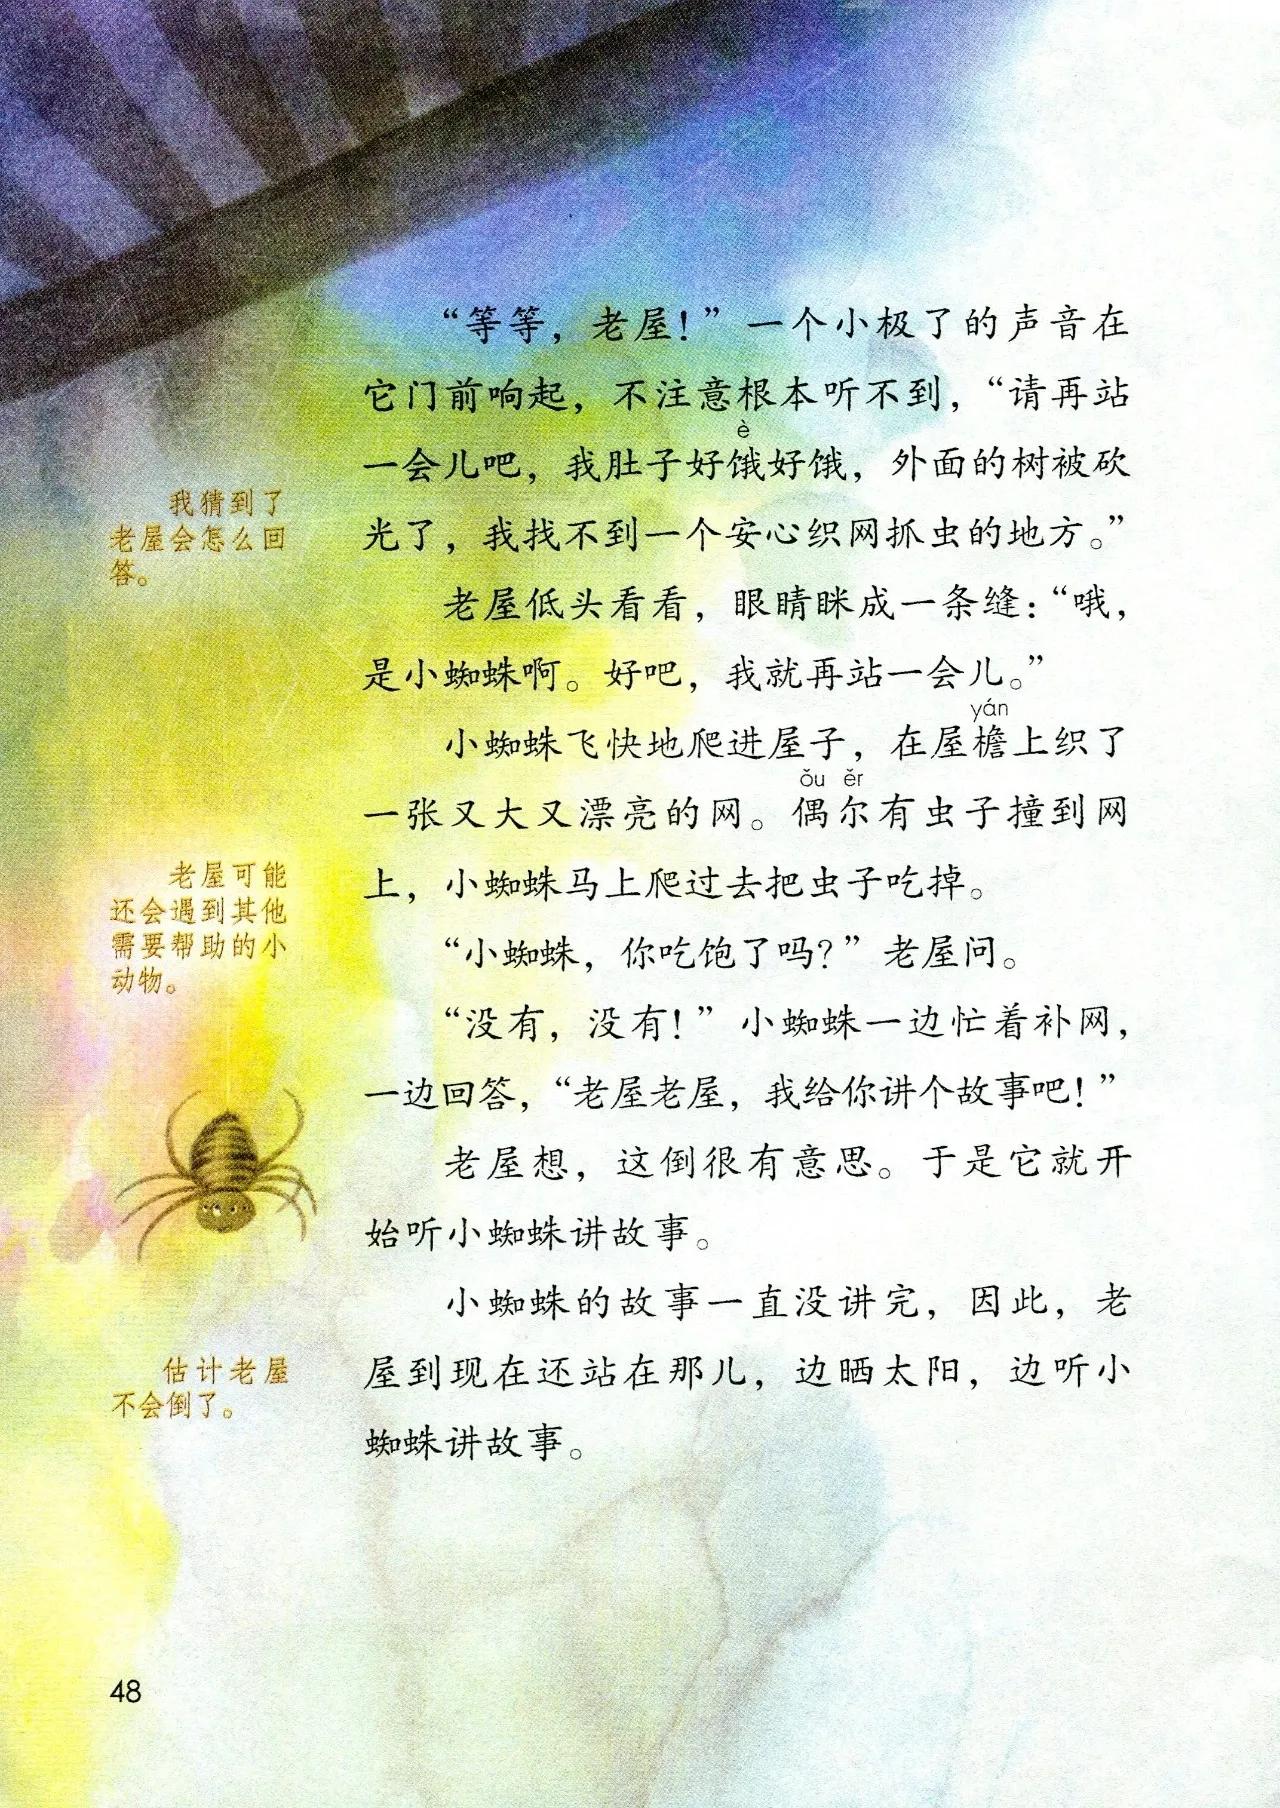 “等等，老屋！”一个小极了的声音在
它门前响起，不注意根本听不到，“请再站
è
一会儿吧，我肚子好饿好饿，外面的树被砍
光了，我找不到一个安心织网抓虫的地方。”
我猜到了
老屋会怎么回
答。
老屋低头看看，眼睛眯成一条缝：“哦，
是小蜘蛛啊。好吧，我就再站一会儿。”
yán
小蜘蛛飞快地爬进屋子，在屋檐上织了
ǒu ěr
一张又大又漂亮的网。偶尔有虫子撞到网
上，小蜘蛛马上爬过去把虫子吃掉。
老屋可能
还会遇到其他
需要帮助的小
动物。
“小蜘蛛，你吃饱了吗？”老屋问。
“没有，没有！”小蜘蛛一边忙着补网，
一边回答，“老屋老屋，我给你讲个故事吧！”
老屋想，这倒很有意思。于是它就开
始听小蜘蛛讲故事。
小蜘蛛的故事一直没讲完，因此，老
屋到现在还站在那儿，边晒太阳，边听小
蜘蛛讲故事。
估计老屋
不会倒了。
48